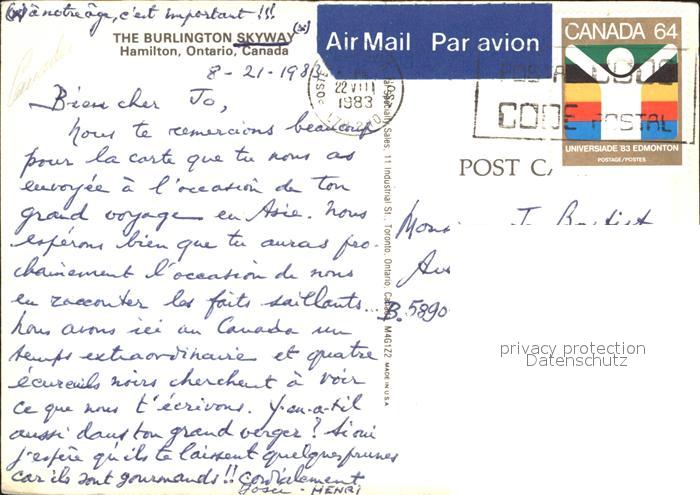 (x) à notre âge, c'est important !!!
THE BURLINGTON SKYWAY (x)
Hamilton, Ontario, Canada
8-21-1983
Bien cher Jo,
Nous te remercions beaucoup
pour la carte que tu nous as
envoyée à l'occasion de ton
grand voyage en Asie. Nous
espérons bien que tu auras pro-
chainement l'occasion de nous
en raconter les faits saillants...
Nous avons ici au Canada un
temps extraordinaire et quatre
écureuils noirs cherchent à voir
ce que nous t'écrivons. Y-en-a-t-il
aussi dans ton grand verger? Si oui
j'espère qu'ils te laissent quelques prunes
car ils sont gourmands!! Cordialement
HENRI
Air Mail Par avion
22 VIII
1983
CODE POSTAL
CANADA 64
UNIVERSIADE '83 EDMONTON
POSTAGE/POSTES
POST CA
Specialty Sales, 11 Industrial St., Toronto, Ontario, Canada M4G1Z2 MADE IN U.S.A.
B. 5890
privacy protection
Datenschutz